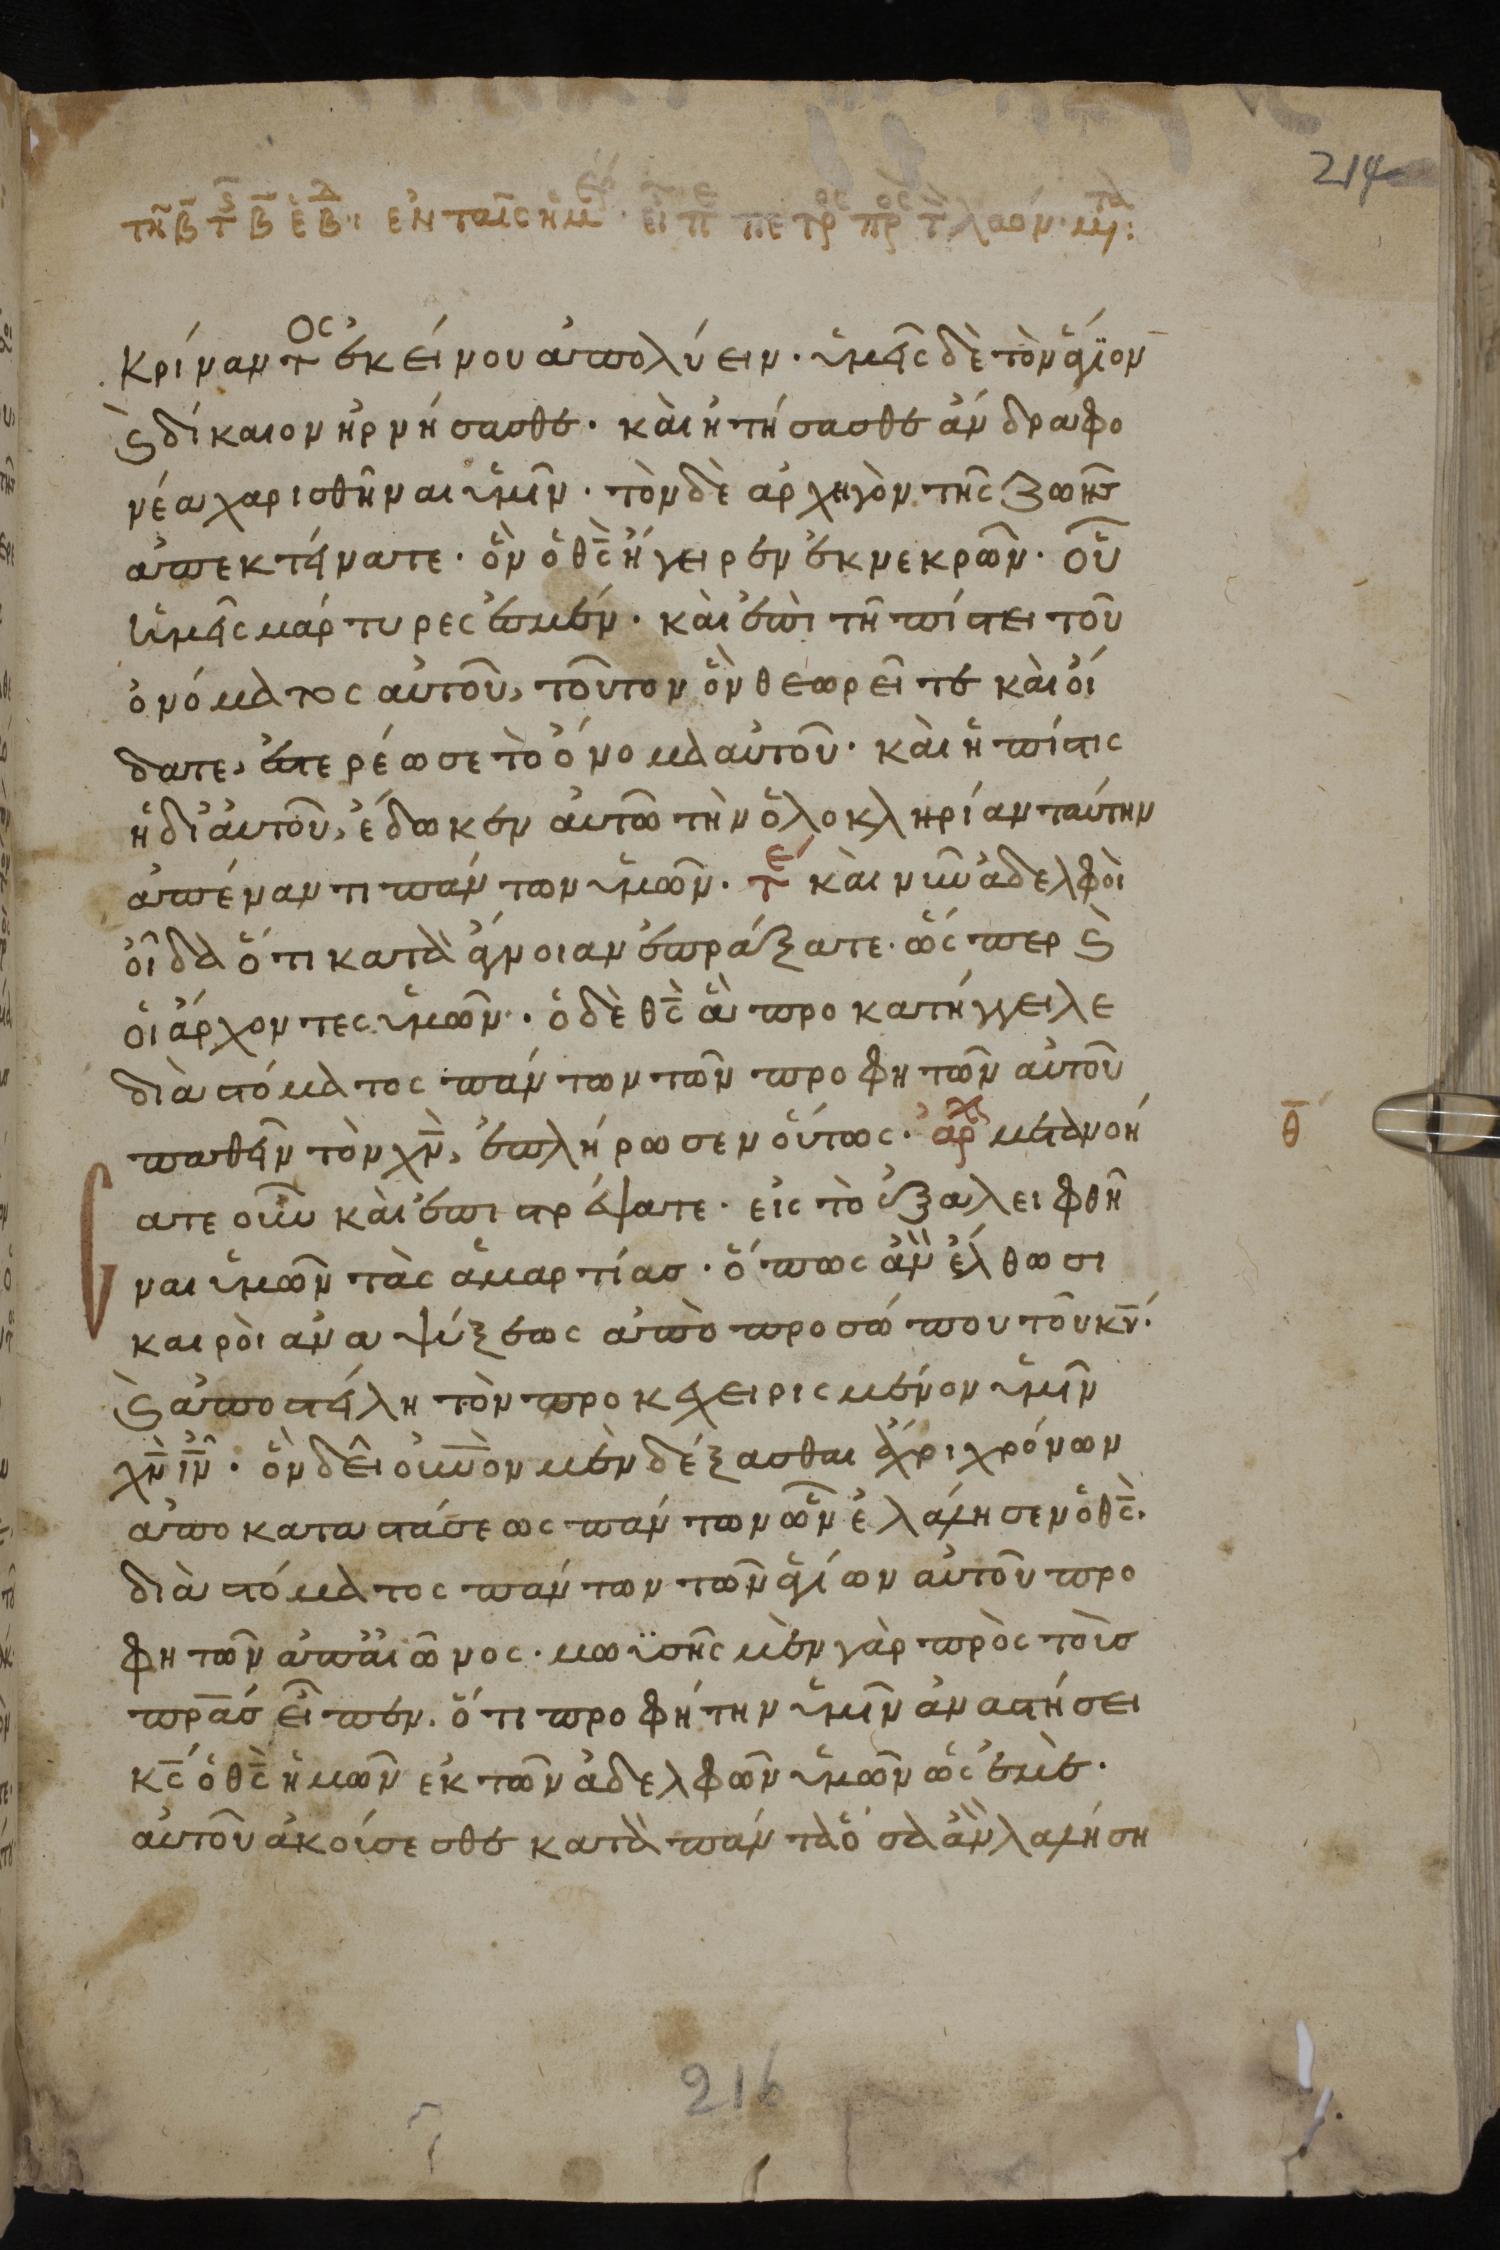 214
τῆ β τ̅ β̅ ἑβ̅δ· ἐν ταῖς ἡμ ἐκεί· εἶπε πετρος πρὸς τ λαόν· μετὰ:
κρίναντος ἐκείνου ἀπολύειν· ὑμεῖς δὲ τὸν ἅγϊον
ϗ δίκαιον ἠρνήσασθε· καὶ ἠτήσασθε ἄνδρα φο
νέα χαρισθῆναι ὑμῖν· τὸν δὲ ἀρχηγὸν τῆς ζωῆς
ἀπεκτείνατε· ὃν ὁ θ̅ς̅ ἤγειρεν ἐκ νεκρῶν· οὗ
ὑμεῖς μάρτυρες ἐσμέν· καὶ ἐπὶ τῆ πίστει τοῦ
ὀνόματος αὐτοῦ, τοῦτον ὃν θεωρεῖτε καὶ οἴ
δατε, ἐστερέωσε τὸ ὄνομα αὐτοῦ· καὶ ἡ πίστις
ἡ δι' αὐτοῦ, ἔδωκεν αὐτῶ τὴν ὁλοκληρίαν ταύτην
ἀπέναντι πάντων ὑμῶν· τε καὶ νῦν ἀδελφοὶ
οἶδα ὅτι κατὰ ἄγνοιαν ἐπράξατε· ὥσπερ ϗ
οἱ ἄρχοντες ὑμῶν· ὁ δὲ θ̅ς̅ ἃ προκατήγγειλε
διὰ στόματος πάντων τῶν προφητῶν αὐτοῦ
παθεῖν τὸν χ̅ν̅, ἐπλήρωσεν οὕτως· ἀρχ μετανοή
θ̅
σατε οὖν καὶ ἐπιστρέψατε· εἰς τὸ ἐξαλειφθῆ
ναι ὑμῶν τὰς ἁμαρτίας· ὅπως ἂν ἔλθωσι
καιροὶ ἀναψύξεως ἀπὸ προσώπου τοῦ κ̅υ̅·
ϗ ἀποστείλη τὸν προκεχειρισμένον ὑμῖν
χ̅ν̅ ι̅ν̅· ὃν δεῖ οὐ̅ν̅ον μὲν δέξασθαι ἄχρι χρόνων
ἀποκαταστάσεως πάντων ὧν ἐλάλησεν ὁ θ̅ς̅·
διὰ στόματος πάντων τῶν ἁγίων αὐτοῦ προ
φητῶν ἀπ' αἰῶνος· μωϋσῆς μὲν γὰρ πρὸς τοὺς
π̅ρ̅α̅ς εἶπεν· ὅτι προφήτην ὑμῖν ἀναστήσει
κ̅ς̅ ὁ θ̅ς̅ ἡμῶν ἐκ τῶν ἀδελφῶν ὑμῶν ὡς ἐμὲ·
αὐτοῦ ἀκούσεσθε κατὰ πάντα ὅσα ἂν λαλήση
216